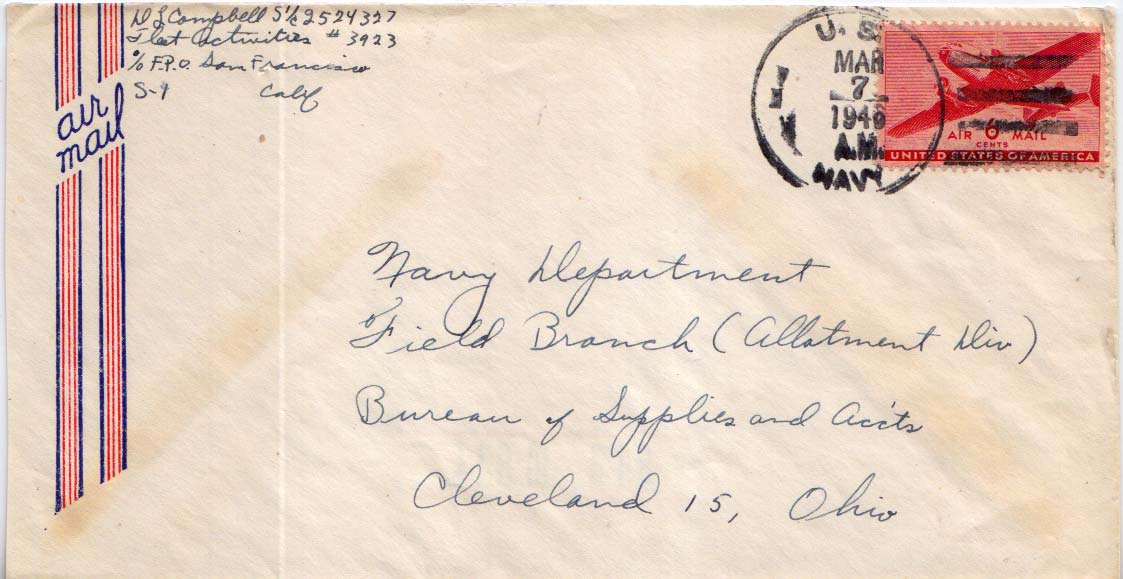 D L Campbell S 1/c 2524327
Fleet Activities # 3923
c/o F.P.O. San Francisco
S-9 Calif
air
mail
U. S.
MAR
7
1946
A.M.
NAVY
AIR 6 MAIL
CENTS
UNITED STATES OF AMERICA
Navy Department
Field Branch (Allotment Div)
Bureau of Supplies and Acc'ts
Cleveland 15, Ohio